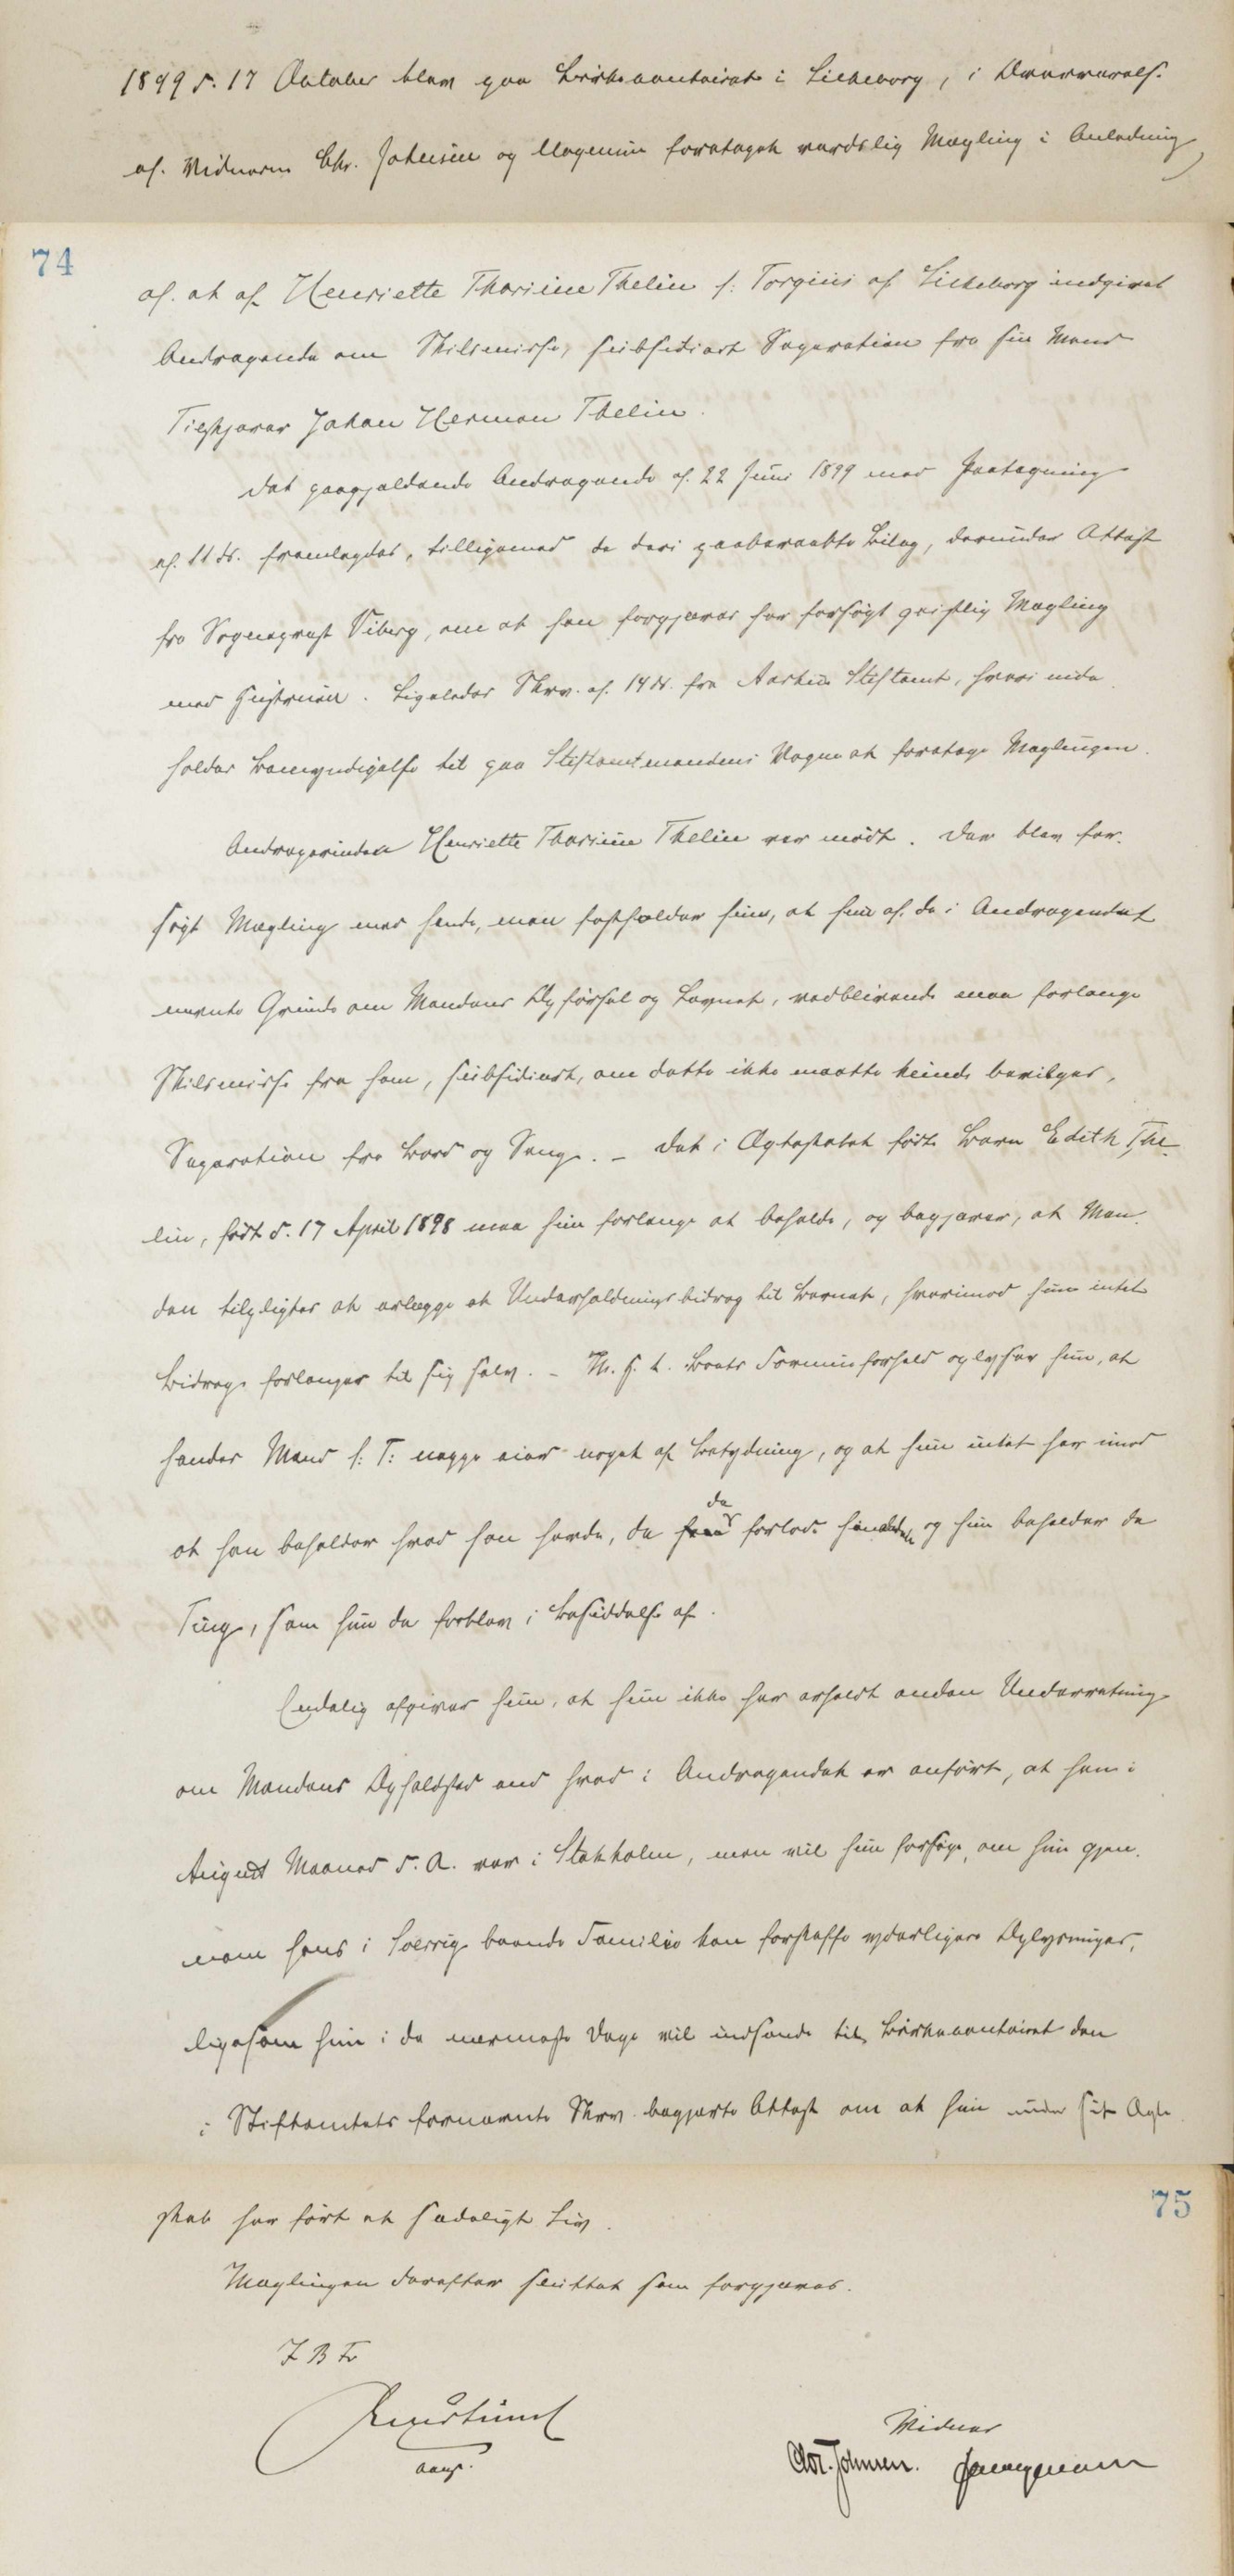 1899 d. 17 October blev paa Birkecontoiret i Silkeborg, i Overværelse
af Vidnerne Chr. Johnsen og Mogensen foretaget verdslig Mægling i Anledning
74
af. at af Henriette Thorsine Thelin f: Torgius af Silkeborg indgivet
Andragende om Skilsmisse, subsidiært Separation fra sin Mand
Tjeskjærer Johan Herman Thelin.
Det paagjældende Andragende af 22 Juni 1899 med Paategning
af 11 ds. fremlagdes, tilligemed de deri paaberaabte Bilag, derunder Attest
fra Sogneprest Viberg, om at han forgjæves har forsøgt geistlig Mægling
med Hustruen. Ligeledes Skrv. af 14 ds. fra Aarhus Stiftamt, hvori inde
holdes Bemyndigelse til paa Stiftamtmandens Vegne at foretage Mæglingen.
Andragerinden Henriette Thorsine Thelin var mødt. Der blev for-
søgt Mægling med hende, men fastholder hun, at hun af de i Andragendet
nævnte Grunde om Mandens Opførsel og Levnet, vedblivende maa forlange
Skilsmisse fra ham, subsidiært, om dette ikke maatte kunde bevilges,
Separation fra Bord og Seng. – Det i Ægteskabet fødte Barn Edith The-
lin, født d. 17 April 1898 maa hun forlange at beholde, og begjærer, at Man-
den tilpligtes at erlægge et Underholdningsbidrag til Barnet, hvorimod hun intet
Bidrag forlanger til sig selv. – M. H. t. Boets Formueforhold oplyser hun, at
hendes Mand f: T: neppe eier noget af Betydning, og at hun intet har imod
at han beholder hvad han havde, da
de
forlod hinanden og hun beholder de
Ting, som hun da forblev i Besiddelse af.
Endelig afgiver hun, at hun ikke har erholdt anden Underretning
om Mandens Opholdsted end hvad i Andragendet er anført, at han i
August Maaned d. A. var i Stokholm, men vil hun forsøge, om hun gjen-
nem hans i Sverrig boende Familie kan forskaffe yderligere Oplysninger,
ligesom hun i de nærmeste Dage vil indsende til Birkecontoiret den
i Stiftamtets fornævnte Skrv. begjærte Attest om at hun under sit Ægte
75
skab har ført et sædeligt Liv.
Mæglingen derefter sluttet som forgjæves.
I B F
Vidner
Chr. Johnsen.